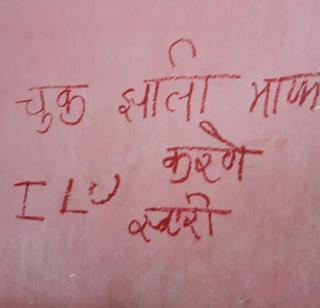 चुक झाली माफ
करणे
I L U
स्वारी